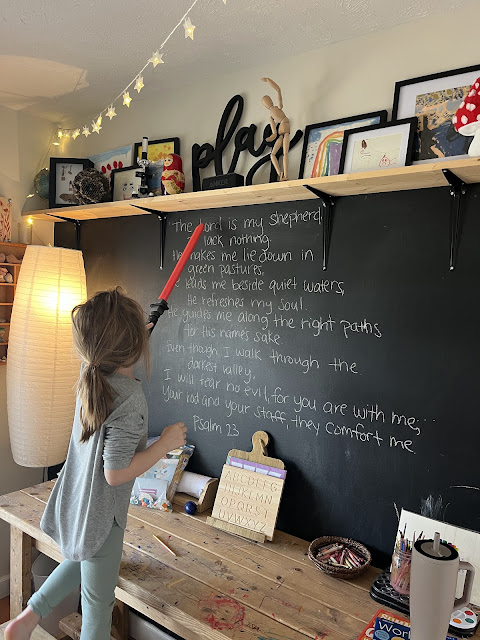 play
The Lord is my shepherd,
I lack nothing.
He makes me lie down in
green pastures,
He leads me beside quiet waters,
He refreshes my soul.
He guides me along the right paths
for his names sake.
Even though, I walk through the
darkest valley,
I will fear no evil, for you are with me;
Your rod and your staff, they comfort me
Psalm 23